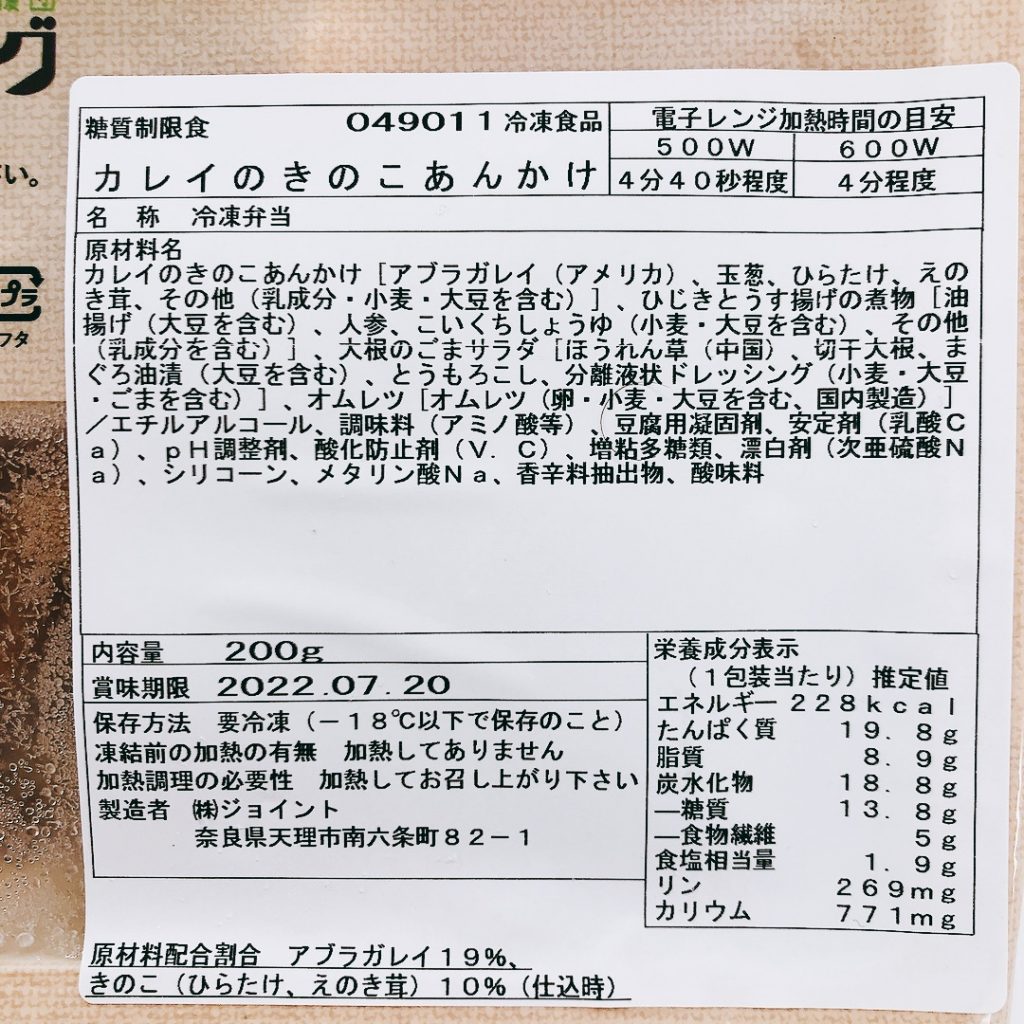 グ
さい。
プラ
フタ
糖質制限食 049011 冷凍食品
カレイのきのこあんかけ
電子レンジ加熱時間の目安
500W 600W
4分40秒程度 4分程度
名 称 冷凍弁当
原材料名
カレイのきのこあんかけ[アブラガレイ(アメリカ)、玉葱、ひらたけ、えの
き茸、その他(乳成分・小麦・大豆を含む)]、ひじきとうす揚げの煮物[油
揚げ(大豆を含む)、人参、こいくちしょうゆ(小麦・大豆を含む)、その他
(乳成分を含む)]、大根のごまサラダ[ほうれん草(中国)、切干大根、ま
ぐろ油漬(大豆を含む)、とうもろこし、分離液状ドレッシング(小麦・大豆
・ごまを含む)]、オムレツ[オムレツ(卵・小麦・大豆を含む、国内製造)]
/エチルアルコール、調味料(アミノ酸等)、豆腐用凝固剤、安定剤(乳酸C
a)、pH調整剤、酸化防止剤(V.C)、増粘多糖類、漂白剤(次亜硫酸N
a)、シリコーン、メタリン酸Na、香辛料抽出物、酸味料
内容量 200g
賞味期限 2022.07.20
保存方法 要冷凍(-18℃以下で保存のこと)
凍結前の加熱の有無 加熱してありません
加熱調理の必要性 加熱してお召し上がり下さい
製造者 ㈱ジョイント
奈良県天理市南六条町82-1
栄養成分表示
(1包装当たり)推定値
エネルギー 228kcal
たんぱく質 19.8g
脂質 8.9g
炭水化物 18.8g
―糖質 13.8g
―食物繊維 5g
食塩相当量 1.9g
リン 269mg
カリウム 771mg
原材料配合割合 アブラガレイ19%、
きのこ(ひらたけ、えのき茸)10%(仕込時)